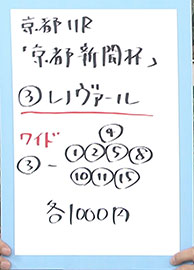 京都11R
「京都新聞杯」
③レノヴァール
ワイド
⑨
③-①②⑤⑧
⑩⑪⑮
各1000円